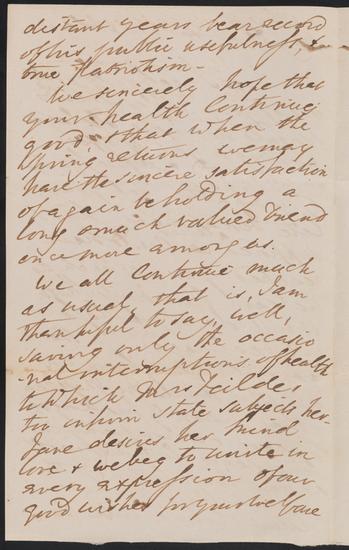 distant years bear record
of his public usefulness, &
true Patriotism -
We sincerely hope that
your health continues
good, & that when the
spring returns we may
have the sincere satisfaction
of again beholding a
long & much valued Friend
once more among us.
We all continue much
as usual, that is, I am
thankful to say, well,
saving only the occasio
nal interruptions of health
to which Mrs
too infirm state subjects her.
Jane desires her kind
love & we beg to unite in
every expression of our
good wishes for your welfare